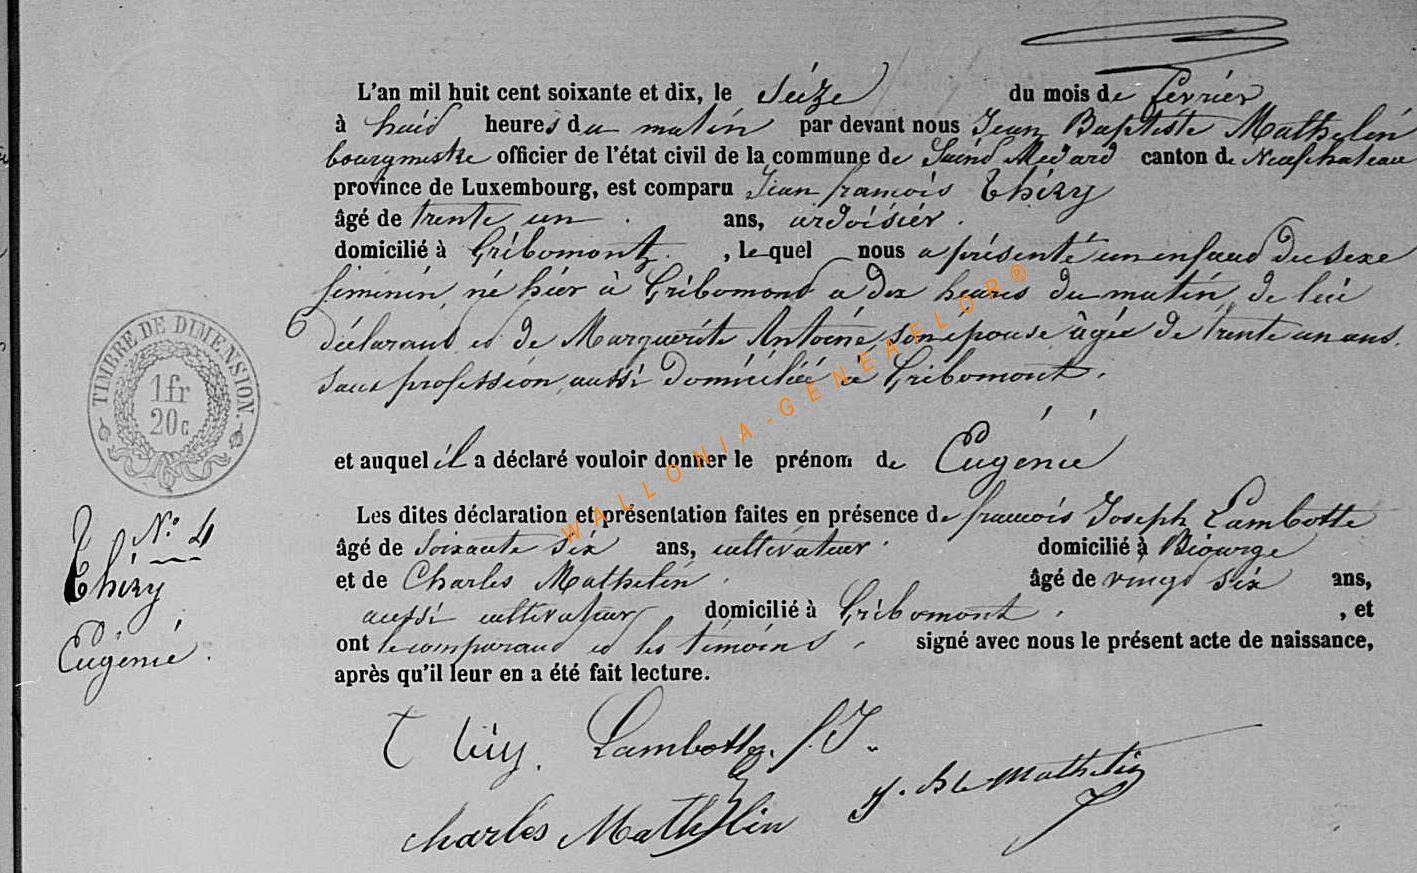 L'an mil huit cent soixante et dix, le Seize du mois de février
à huit heures du matin par devant nous Jean Baptiste Mathelin
bourgmestre officier de l'état civil de la commune de Saint Medard canton de Neufchateau
province de Luxembourg, est comparu Jean françois Thiry
âgé de trente un ans, ardoisier.
domicilié à Gribomont, le quel nous a présenté un enfant du sexe
féminin, né hier à Gribomont a dix heures du matin, de lui
déclarant et de Marguerite Antoine son épouse âgée de trente un ans,
sans profession, aussi domiciliée à Gribomont.
et auquel il a déclaré vouloir donner le prénom de Eugénie
Les dites déclaration et présentation faites en présence de françois Joseph Lambotte
âgé de soixante six ans, cultivateur domicilié à Biourge
et de Charles Mathelin âgé de vingt six ans,
aussi cultivateur domicilié à Gribomont, et
ont le comparant et les témoins signé avec nous le présent acte de naissance,
après qu'il leur en a été fait lecture.
Thiry. Lambotte f. J.
Charles Mathelin J. Bte Mathelin
TIMBRE DE DIMENSION.
1 fr
20 c
N° 4
Thiry
Eugénie.
WALLONIA-GENEAFLOR®